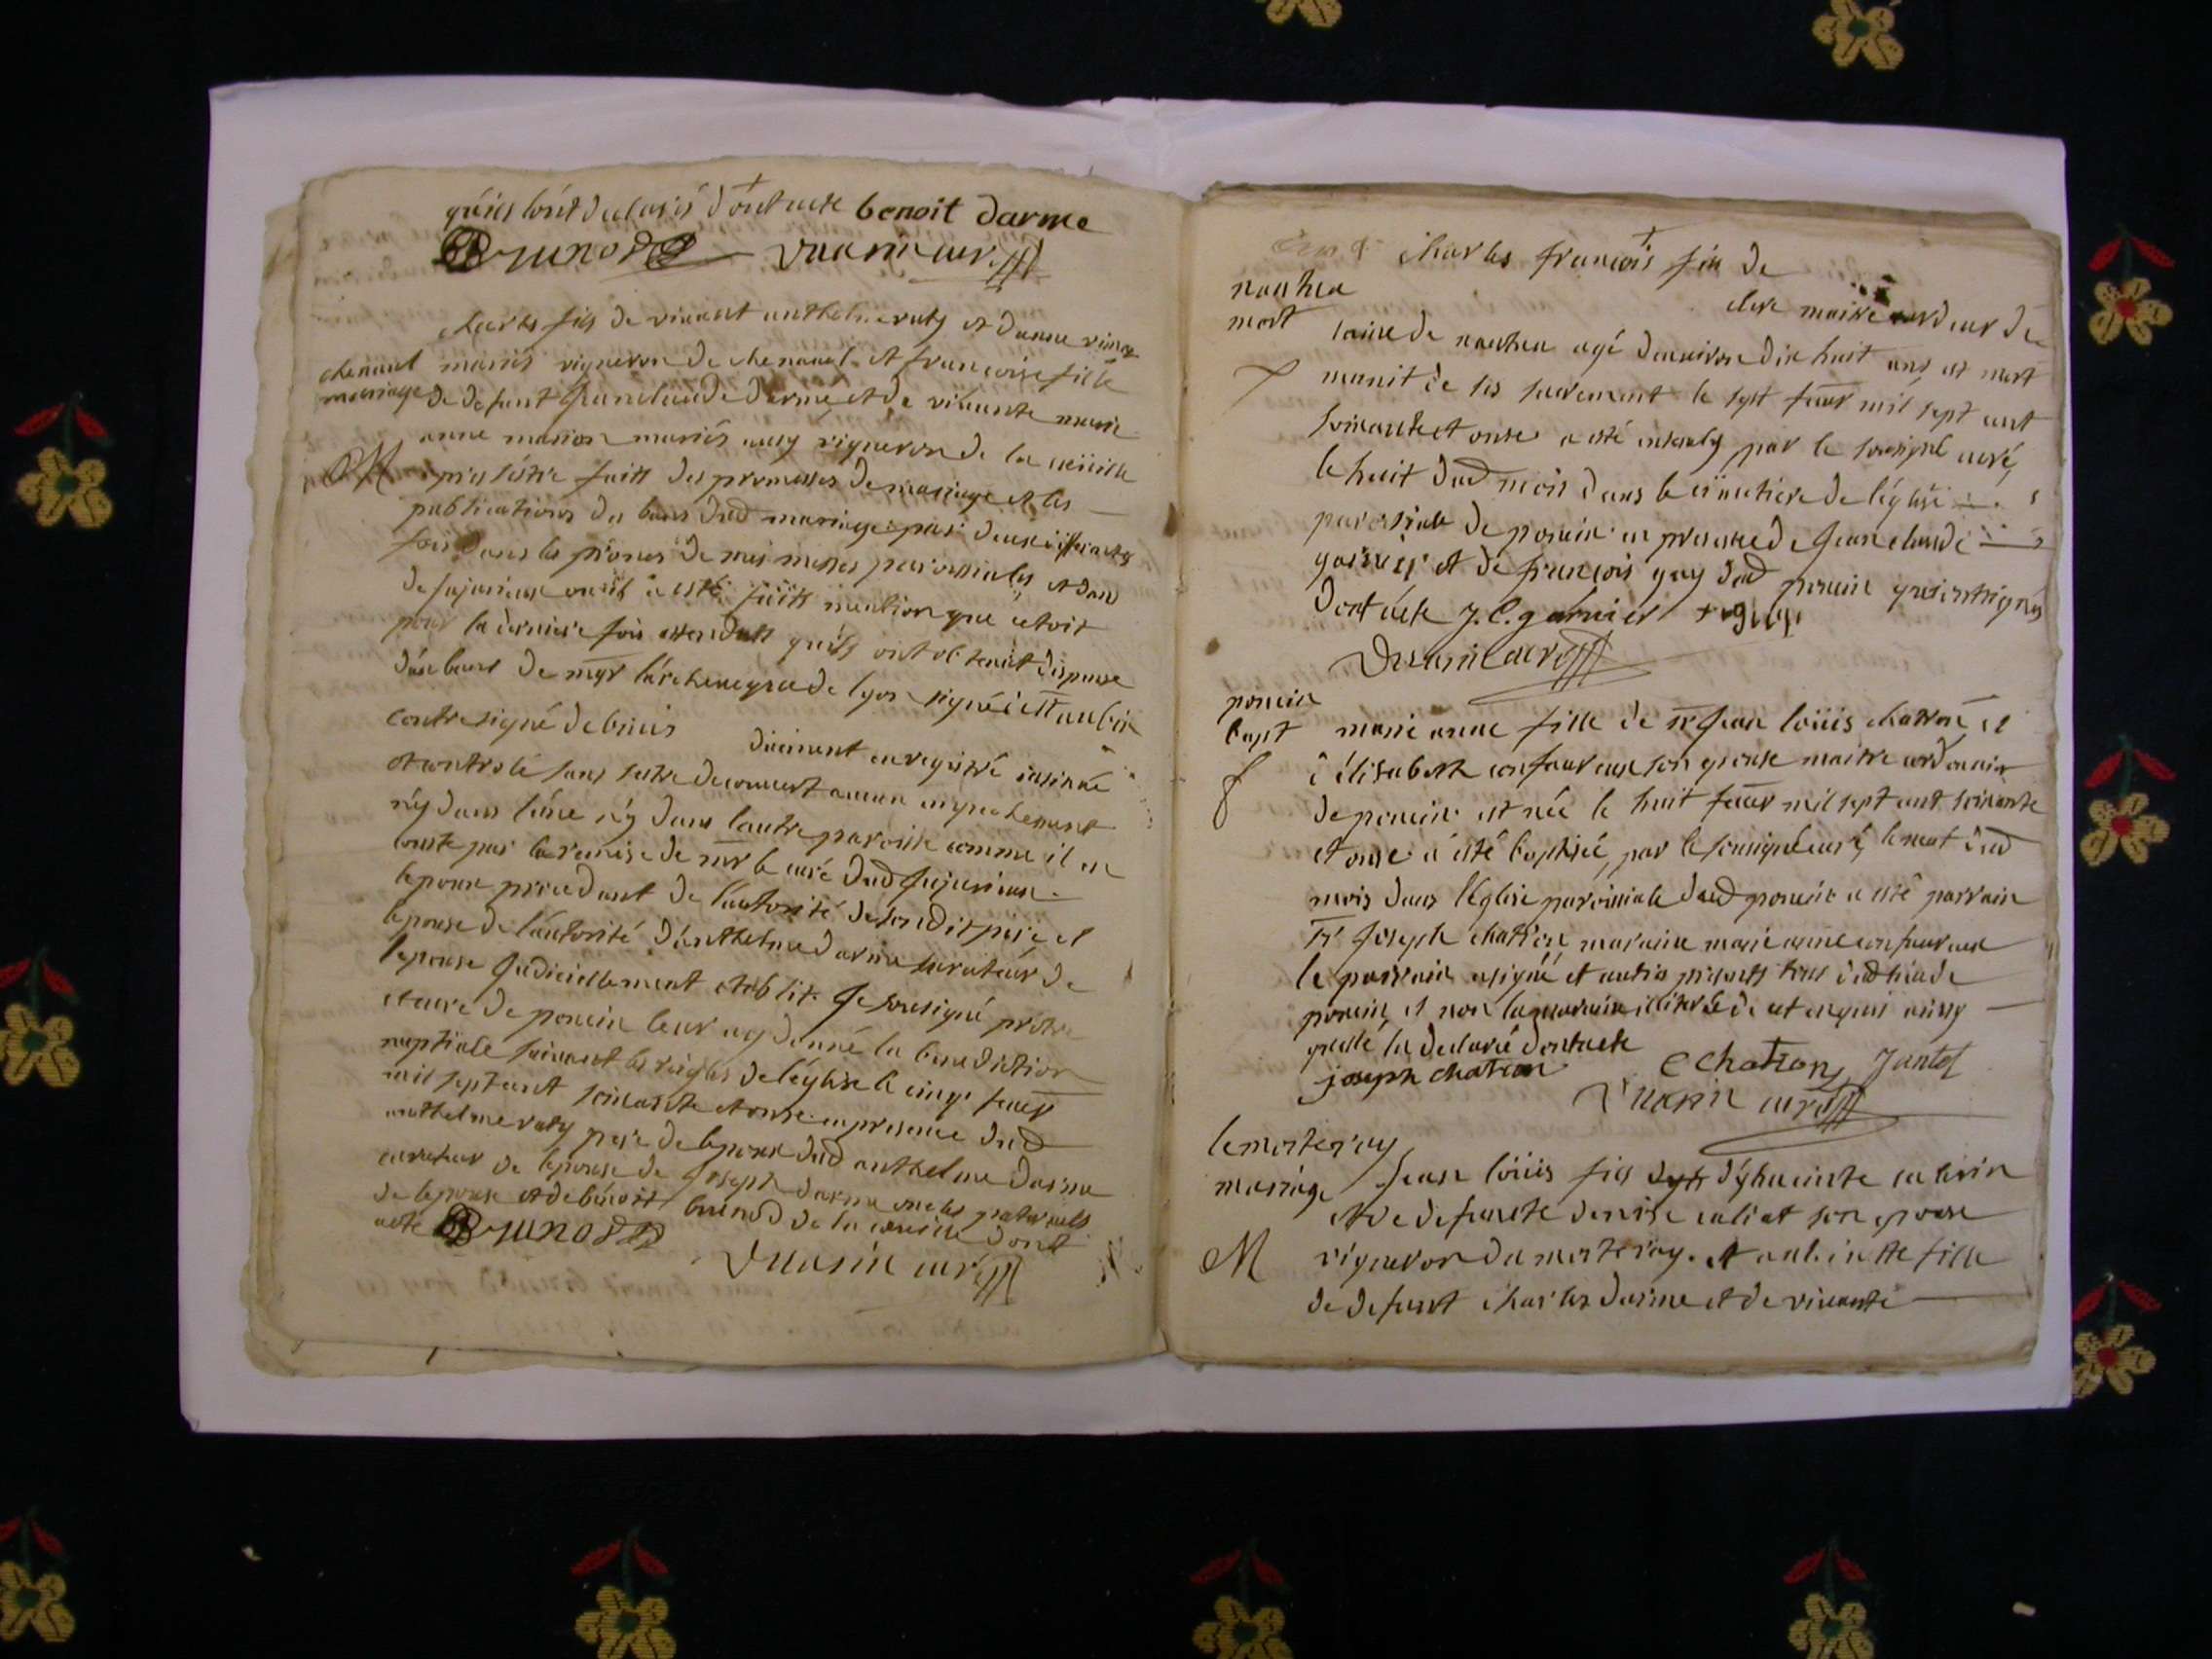 qu'ils l'ont déclaré dont acte benoit darme
Brunod vuarin curé
charles fils de vivant anthelme ruty et danne
chenavel mariés vigneron de chenavel et françoise fille
mariage de defunt jean claude darme et de vivante marie
anne marion mariés aussy vigneron de la
M apres s'étre fait des promesses de mariage et les
publications de bans dud mariage
fois dans les prônes de mes messes paroissiales et dans
de jujurieux ou il a esté fait mention que cetoit
pour la derniere fois attendu qu'ils ont obtenut dispense
de bans de mgr l'archeveque de lyon signé
contresigné de
duement enregistré insinué
et controlé sans s'etre decouvert aucun empechement
n'y dans l'une n'y dans l'autre paroisse comme il en
conste par la remise de mr le curé dud jujurieux
lepoux procedant de l'autorité de sondit pere et
lepouse de l'autorité d'anthelme darme curateur de
lepouse judiciellement etablit. je soussigné prêtre
et curé de poncin leur ay donné la benediction
nuptiale suivant les régles de léglise le cinq fever
mil sept cent soixante et onze en presence dud
anthelme ruty pere de lepoux dud anthelme darme
curateur de lepouse de joseph darme oncles paternels
de lepouse et de benoit brunod de la dont
acte Brunod
vuarin curé
charles françois fils de
nauthea
mort
clere maitre cordeur de
laine de nauthea agé denviron dix huit ans est mort
munit de ses sacrement le sept fever mil sept cent
soixante et onse a esté ensevely par le sousigné curé,
le huit dud mois dans le cimetiere de léglise
paroissiale de poncin en presence de jean claude
garnier et de françois guy dud poncin qui ont signés
dont acte j. C. garnier guy
vuarin curé
poncin
bapt marie anne fille de sr jean loüis chatron et
f d'élisabeth confavreux son epouse maitre cordonnier
de poncin est née le huit fever mil sept cent soixante
et onse a esté baptisée, par le sousigné curé, le neuf dud
mois dans l'église paroissiale dud poncin a esté parrain
sr joseph chatron maraine marie anne confavreux
le parrain a signé et autres presents tous dud lieu de
poncin, et non la maraine illitérée de ce enquis ainsy
quelle la declaré dont acte
joseph chatron chatron jantet
vuarin curé
le morteray
mariage jean loüis fils d'yhacinte
et de defuncte denise caliat son epouse
M vigneron du morteray. et antoinette fille
de defunt charles darme et de vivante